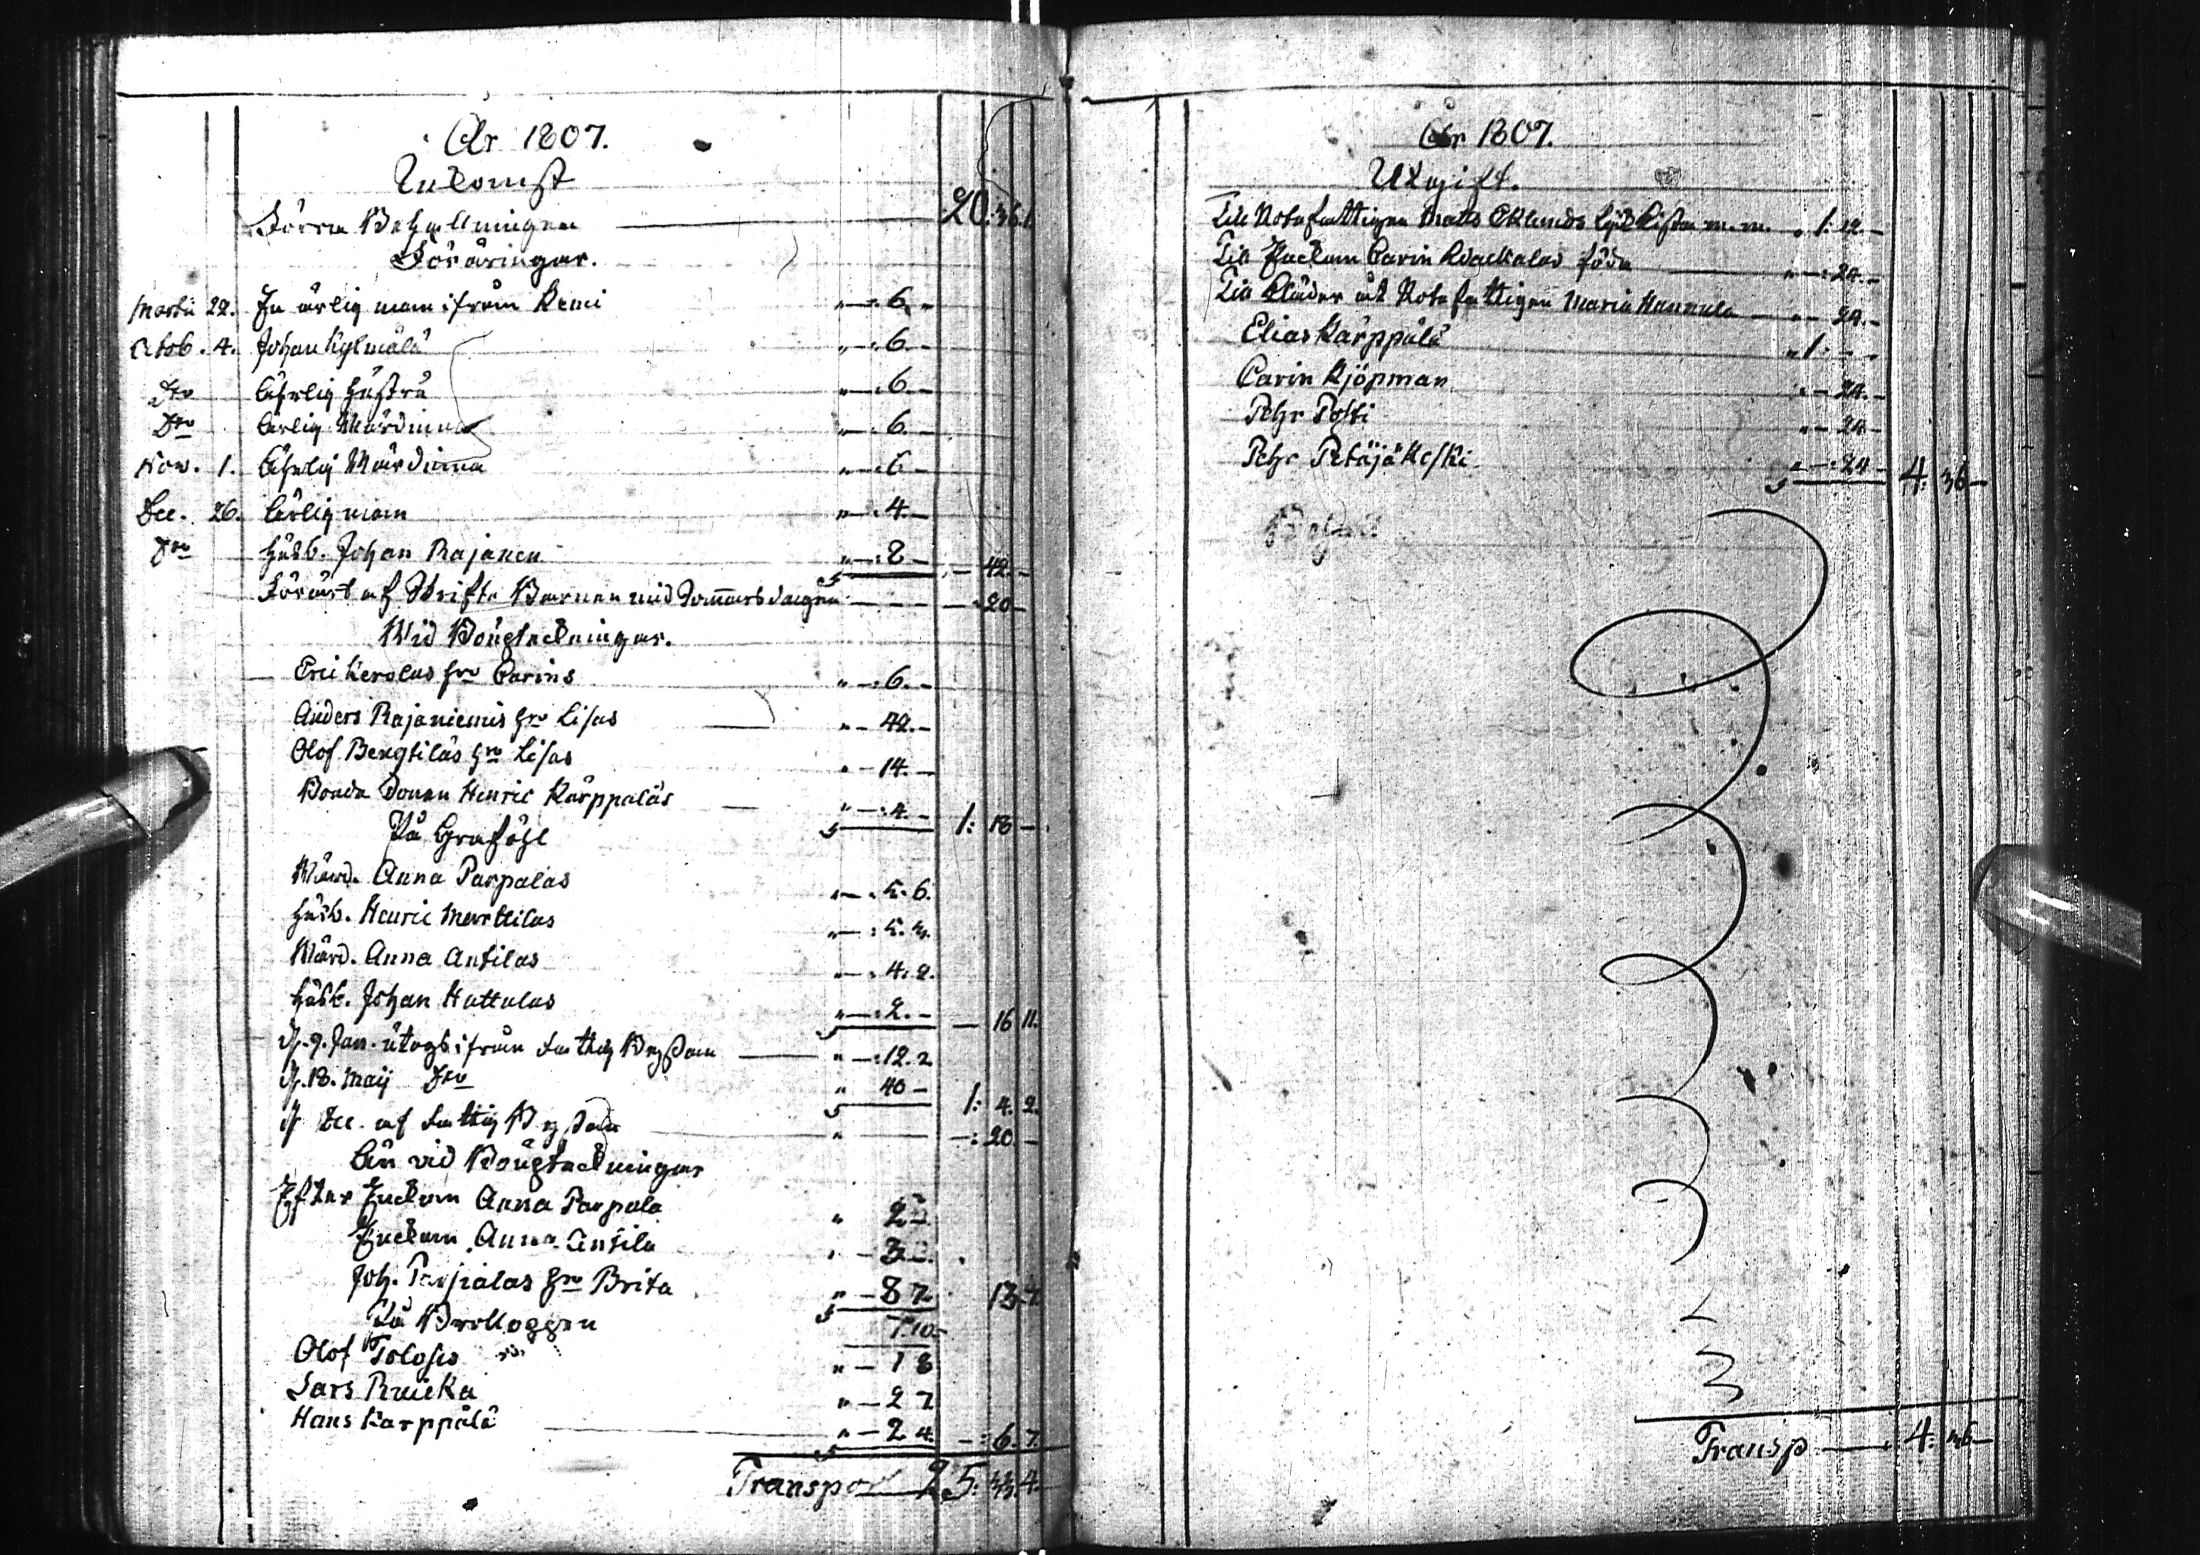 År 1807.
Inkomst
Förra Behållningen 20. 36. 1.
Föräringar.
Martii 22. En ärlig man ifrån Kemi " —: 6. —
Octob. 4. Johan Kylmälä " —: 6. —
Dto Ährlig hustru " —: 6 —
Dto Ärlig Wärdinna " —: 6. —
Nov. 1. Ährlig Wärdinna " —: 6 —
Dec. 26. Ärlig man " —: 4. —
Dto Husb. Johan Rajanen " —: 8 — — 42. —
Förärt af Skrifte Barnen mid Sommars dagen — 20 —
Wid Bouptekningar.
Eric Kerolas hro Carins " —: 6. —
Anders Rajaniemis hro Lisas " — 42. —
Olof Bengtilas hro Lisas " — 14. —
Bonde Sonen Henric Kärppäläs " —: 4. — 1: 18 —
På Graföhl
Wärd. Anna Parpalas " —: 5. 6.
Husb. Henric Marttilas
Wärd. Anna Antilas " —: 4. 2.
Husb. Johan Huttulas " —: 2. — — 16 11.
D. 9. Jan. utogs ifrån Fattig Byssan " —: 12. 2
D. 18. Maij Dto " 40 — 1: 4. 2.
D Dec. af Fattig Byssan " —: 20 —
Än vid Bouptekningar
Efter Enckan Anna Parpala
Enckan Anna Antila
Joh. Parpalas hro Brita " — 8 7 13. 7.
På Brölloppen
Olof Tolosis " — 1 8
Lars Ruicka " — 2 7
Hans Karppälä " — 2 4. —: 6. 7.
Transport 25: 33. 4.
År 1807.
Utgift.
Till Rotefattigen Matts Eklunds Lijk Kista m. m. " 1: 12. —
Till Enckan Carin Kvackalas föda " —: 24. —
Till Kläder åt Rotefattigen Maria Hannula " — 24. —
Elias Kärppälä " 1: — —
Carin Kjöpman " — 24. —
Pehr Posti " — 24 —
Pehr Petäjäkoski " —: 24 — 4: 36 —
Transp 4: 36 —